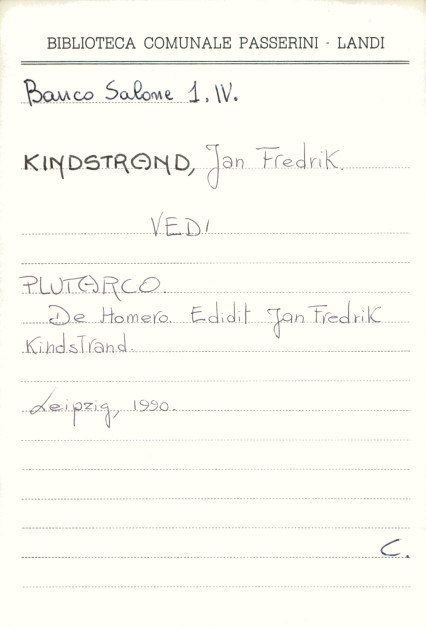 BIBLIOTECA COMUNALE PASSERINI - LANDI
Banco Salone 1. IV.
KINDSTRAND, Jan Fredrik.
VEDI
PLUTARCO.
De Homero. Edidit Jan Fredrik
Kindstrand.
Leipzig, 1990.
C.